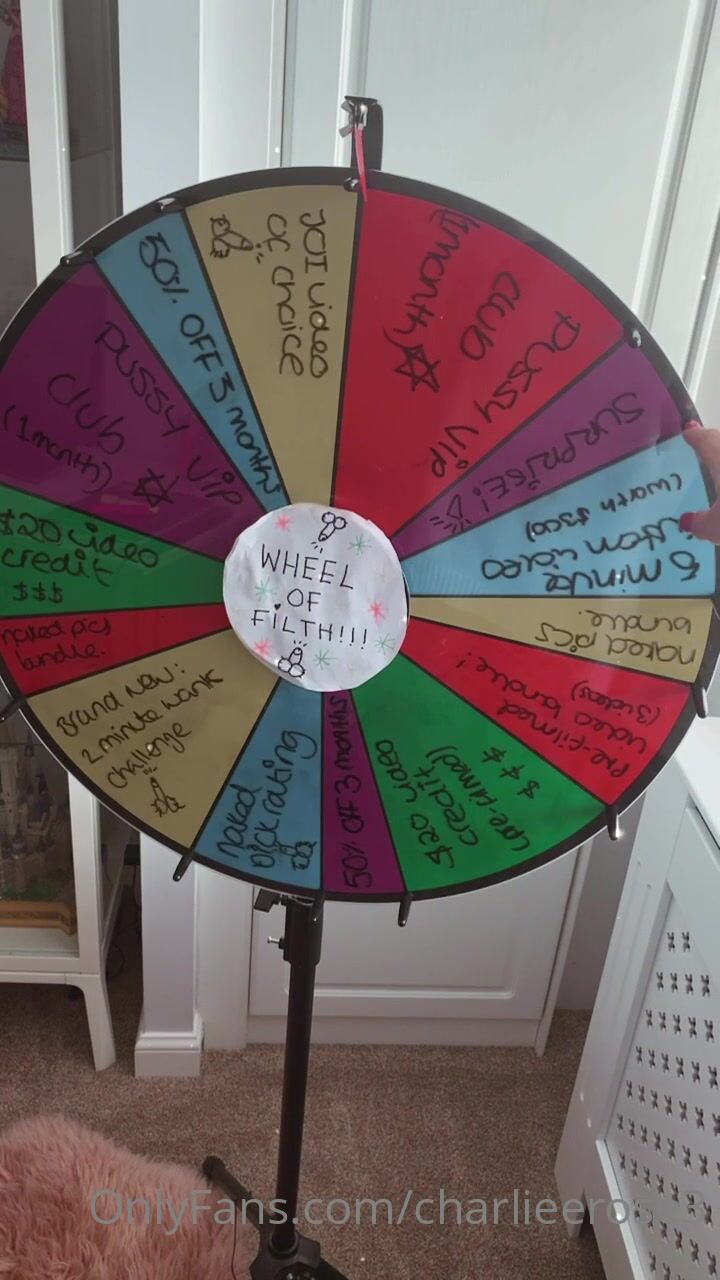 JOI video
of choice
Pussy Vip
Club
(1month)
SURPRISE!
5 minute
video
(worth $300)
naked pics
bundle.
Pre-filmed
video bundle!
(3 videos)
$20 video
credit
(pre filmed)
$$$
50% OFF 3 months
naked
Dick rating
Brand New:
2 minute wank
challenge
naked pics
bundle.
$20 video
credit
$$$
Pussy Vip
Club
(1month)
50% OFF 3 months
WHEEL
OF
FILTH!!!
OnlyFans.com/charlieeros